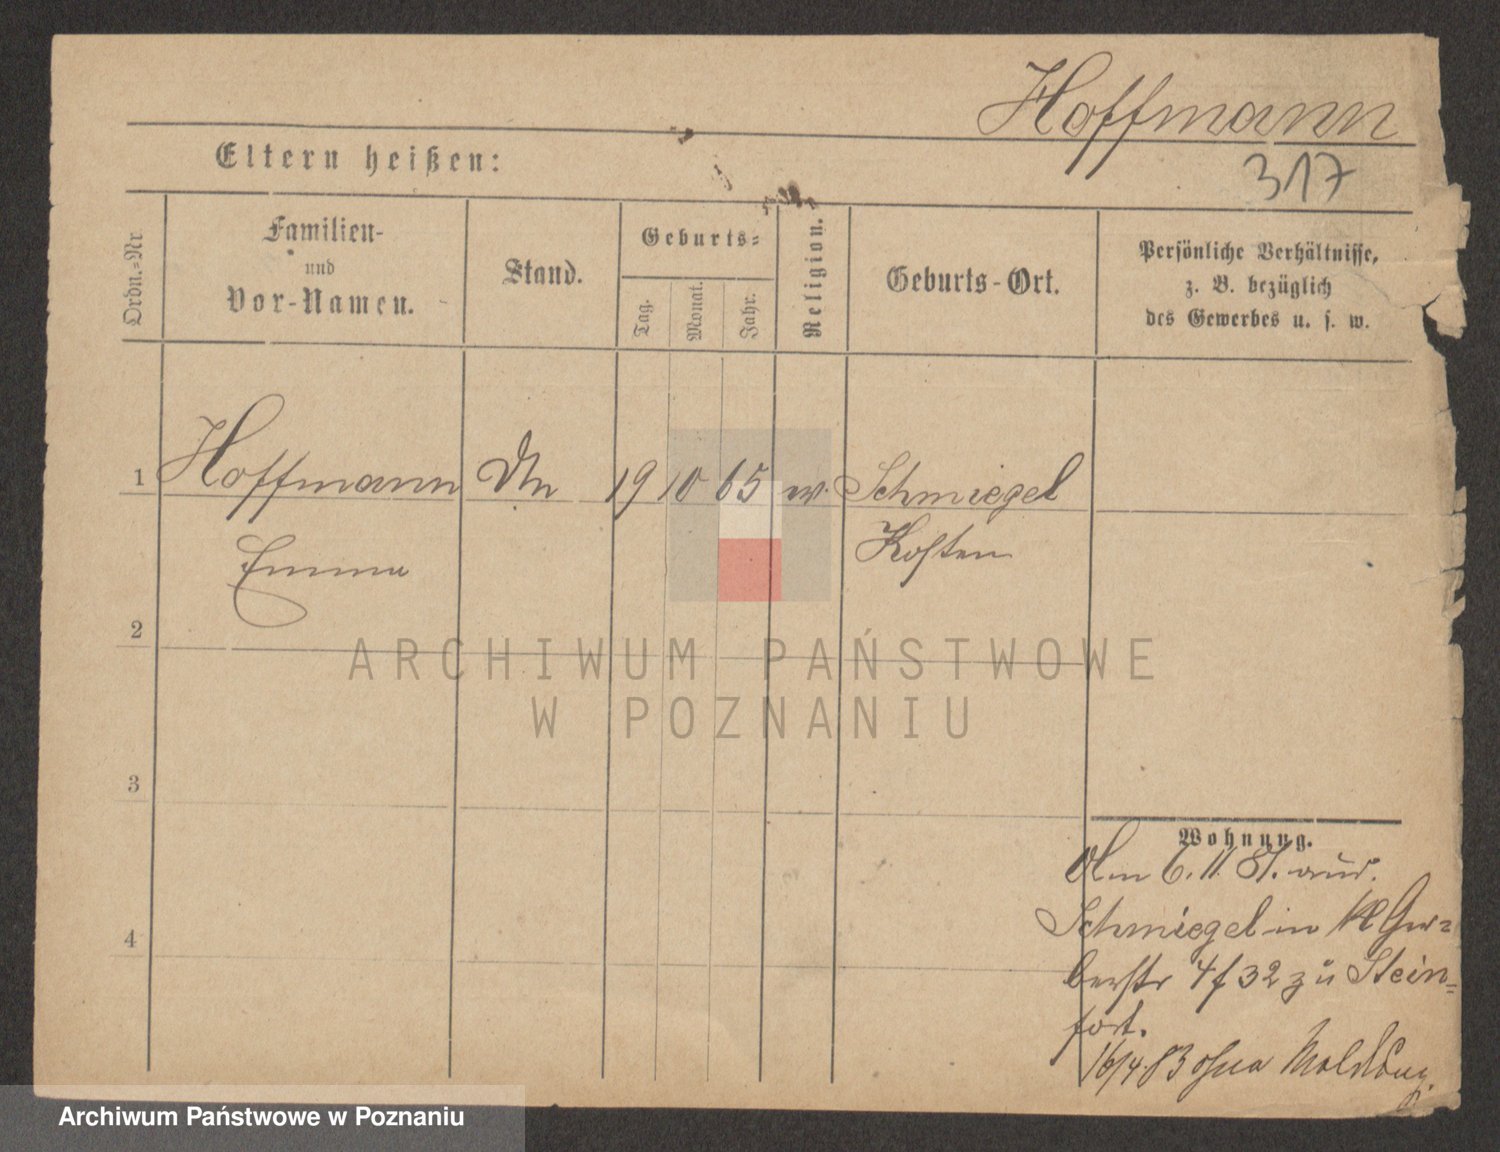 Hoffmann
317
Eltern heißen:
Ordn.-Nr
Familien-
und
Vor-Namen.
Stand.
Geburts-
Tag.
Monat.
Jahr.
Religion.
Geburts-Ort.
Persönliche Verhältnisse,
z. B. bezüglich
des Gewerbes u. s. w.
1 Hoffmann 19 10 65 Schmiegel
Emma Kosten
2
3
4
Wohnung.
6. 11. 81. aus.
Schmiegel in Kl Ger-
berstr 4 f 32 zu Stein-
fort.
16/4.83 ohne Meldung.
ARCHIWUM PAŃSTWOWE
W POZNANIU
Archiwum Państwowe w Poznaniu